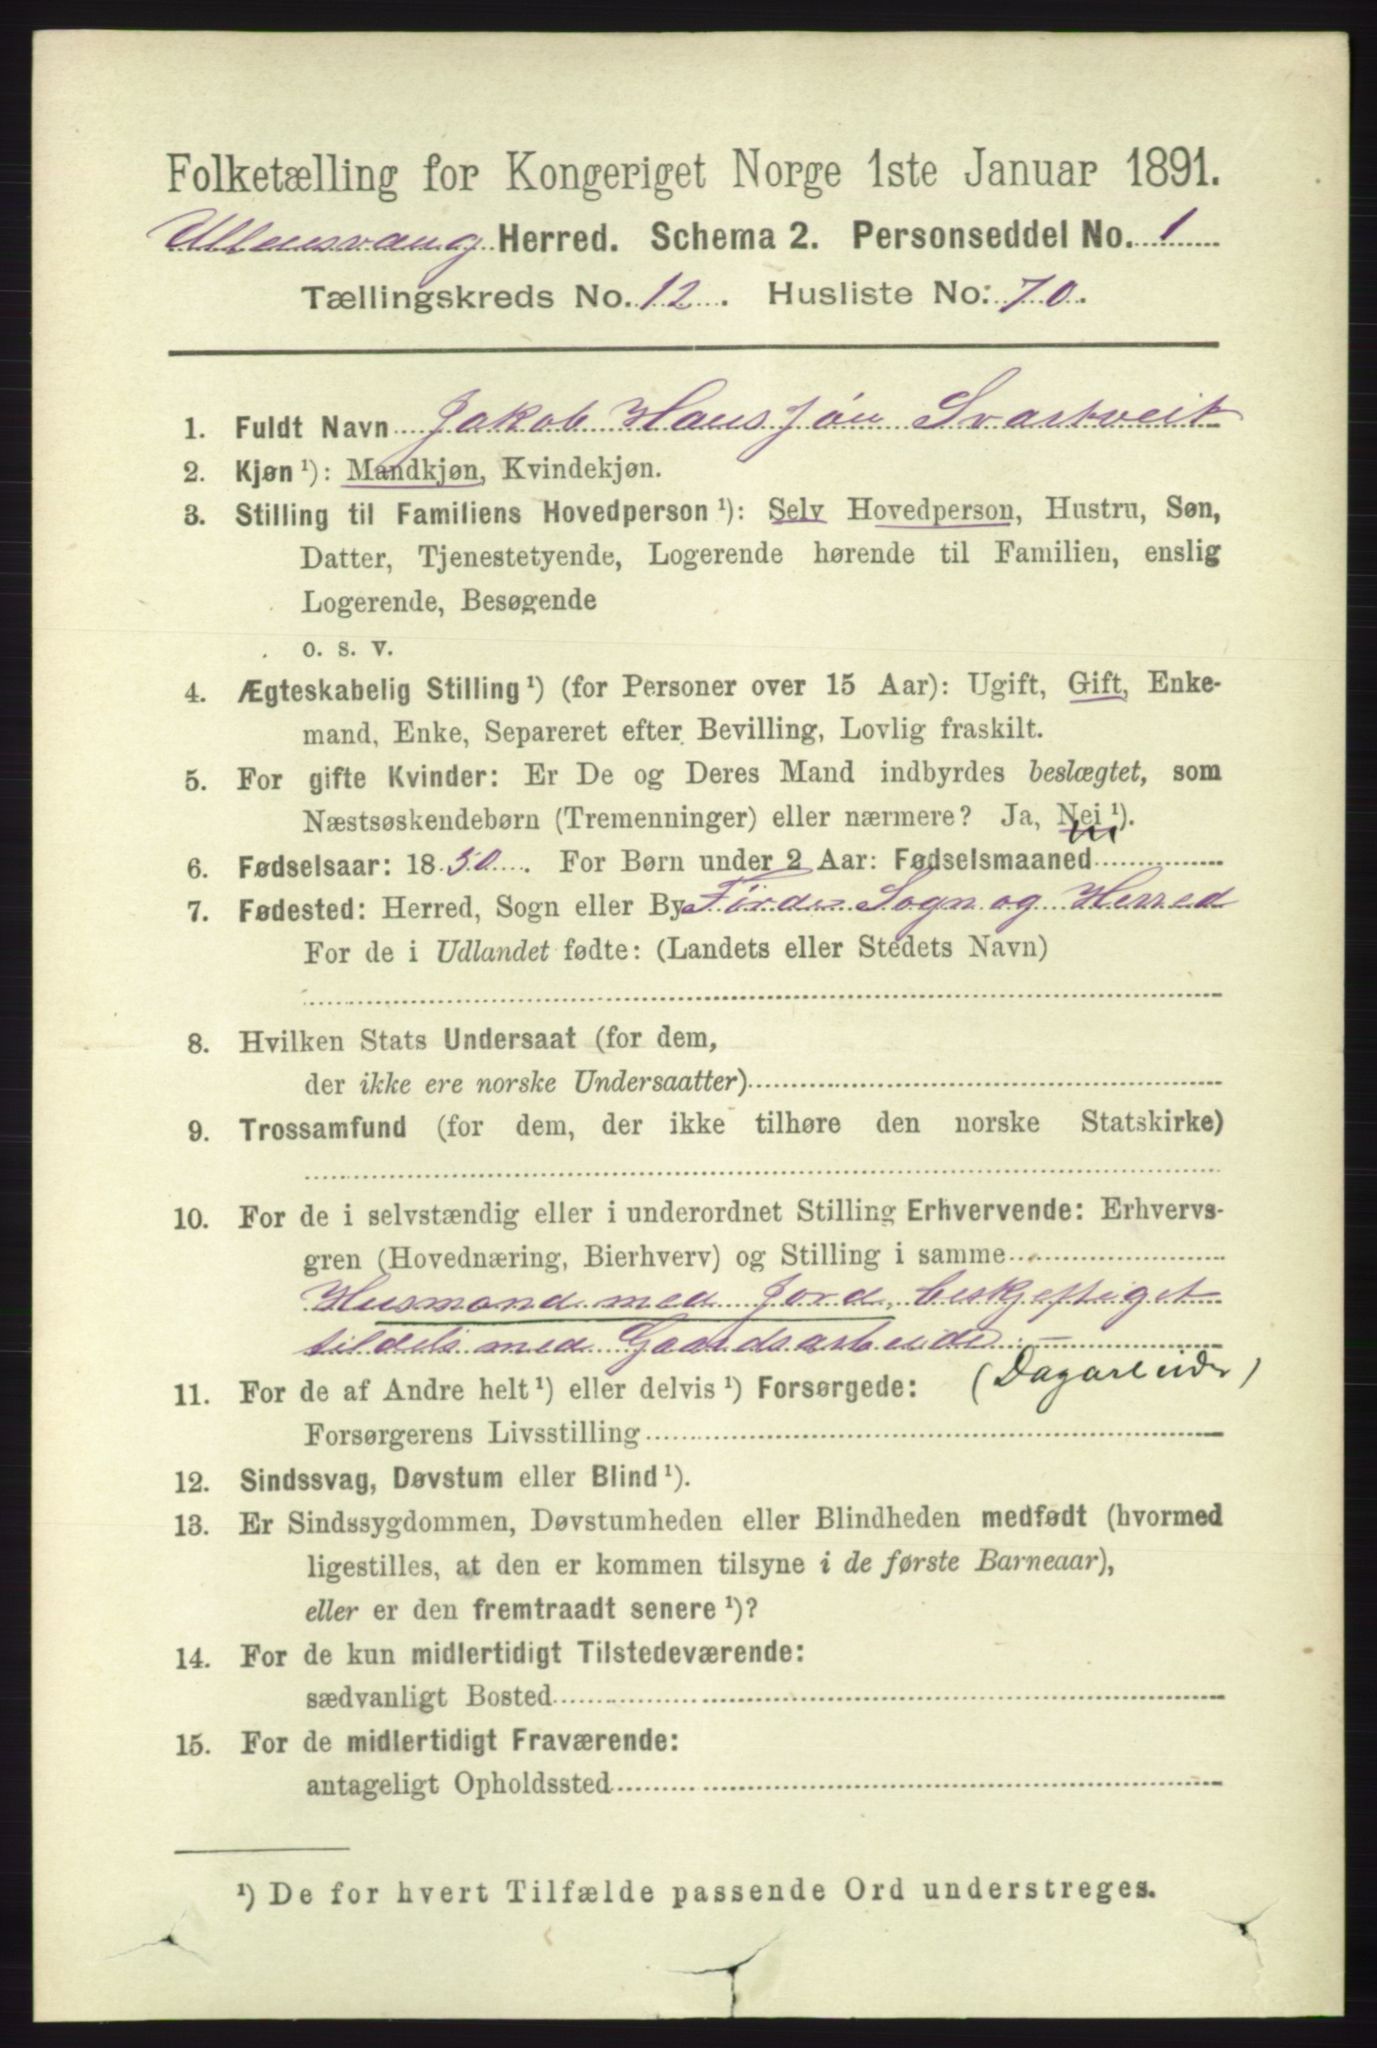 Folketælling for Kongeriget Norge 1ste Januar 1891.
Ullensvang Herred. Schema 2. Personseddel No. 1
Tællingskreds No. 12. Husliste No: 70.
1. Fuldt Navn Jakob Hans Jön Svartveit
2. Kjøn ¹): Mandkjøn, Kvindekjøn.
3. Stilling til Familiens Hovedperson ¹): Selv Hovedperson, Hustru, Søn,
Datter, Tjenestetyende, Logerende hørende til Familien, enslig
Logerende, Besøgende
o. s. v.
4. Ægteskabelig Stilling ¹) (for Personer over 15 Aar): Ugift, Gift, Enke-
mand, Enke, Separeret efter Bevilling, Lovlig fraskilt.
5. For gifte Kvinder: Er De og Deres Mand indbyrdes beslægtet, som
Næstsøskendebørn (Tremenninger) eller nærmere? Ja, Nei ¹).
6. Fødselsaar: 1850. For Børn under 2 Aar: Fødselsmaaned
7. Fødested: Herred, Sogn eller By Førde Sogn og Herred
For de i Udlandet fødte: (Landets eller Stedets Navn)
8. Hvilken Stats Undersaat (for dem,
der ikke ere norske Undersaatter)
9. Trossamfund (for dem, der ikke tilhøre den norske Statskirke)
10. For de i selvstændig eller i underordnet Stilling Erhvervende: Erhvervs-
gren (Hovednæring, Bierhverv) og Stilling i samme
Husmand med Jord, beskjeftiget
tildels med Gaardsarbeide. —
(Dagarbeider)
11. For de af Andre helt ¹) eller delvis ¹) Forsørgede:
Forsørgerens Livsstilling
12. Sindssvag, Døvstum eller Blind ¹).
13. Er Sindssygdommen, Døvstumheden eller Blindheden medfødt (hvormed
ligestilles, at den er kommen tilsyne i de første Barneaar),
eller er den fremtraadt senere ¹)?
14. For de kun midlertidigt Tilstedeværende:
sædvanligt Bosted
15. For de midlertidigt Fraværende:
antageligt Opholdssted
¹) De for hvert Tilfælde passende Ord understreges.